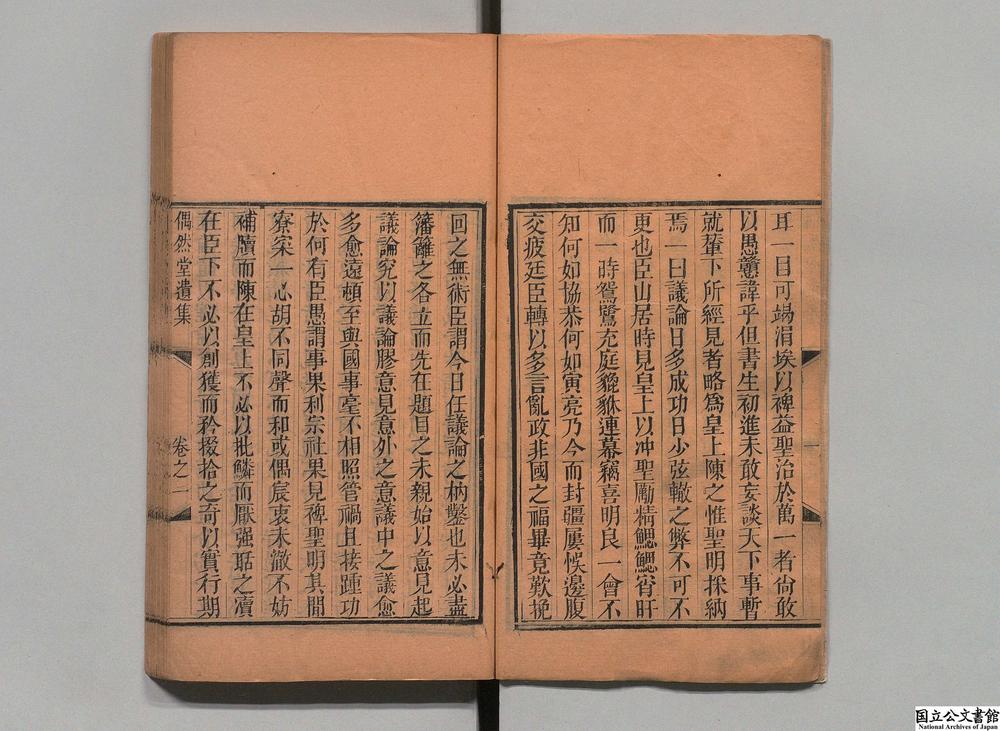 耳一目可竭涓埃以裨益聖治於萬一者尙敢
以愚戇諱乎但書生初進未敢妄談天下事暫
就輦下所經見者略爲皇上陳之惟聖明採納
焉一曰議論日多成功日少弦轍之弊不可不
更也臣山居時見皇上以冲聖勵精鰓鰓宵旰
而一時鴛鷺充庭貔貅連幕竊喜明良一會不
知何如協恭何如寅亮乃今而封疆屢悞邊腹
交疲廷臣轉以多言亂政非國之福畢竟歎挽
回之無術臣謂今日任議論之枘鑿也未必盡
籓籬之各立而先在題目之未親始以意見起
議論究以議論膠意見意外之意議中之議愈
多愈遠頓至與國事毫不相照管禍且接踵功
於何有臣愚謂事果利宗社果見稗聖明其間
寮寀一心胡不同聲而和或偶宸衷未澈不妨
補牘而陳在皇上不必以批鱗而厭强聒之瀆
在臣下不必以創獲而矜掇拾之奇以實行期
偶然堂遺集
卷之一
国立公文書館
National Archives of Japan